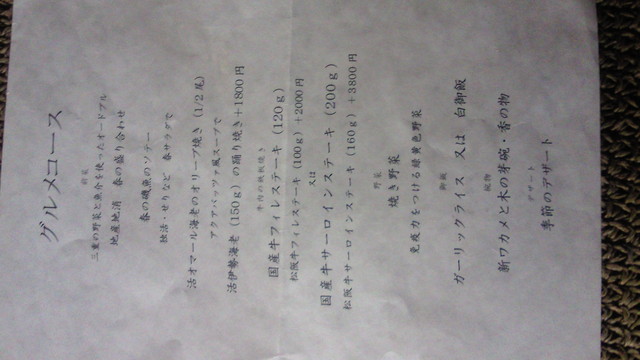 グルメコース
前菜
三重の野菜と魚介を使ったオードブル
地産地消 春の盛り合わせ
春の磯魚のソテー
独活・せりなど 春サラダで
活オマール海老のオリーブ焼き (1/2尾)
アクアパッツァ風スープで
活伊勢海老 (150g) の踊り焼き+1800円
牛肉の鉄板焼き
国産牛フィレステーキ (120g)
松阪牛フィレステーキ (100g) +2000円
又は
国産牛サーロインステーキ (200g)
松阪牛サーロインステーキ (160g) +3800円
野菜
焼き野菜
免疫力をつける緑黄色野菜
御飯
ガーリックライス 又は 白御飯
椀物
新ワカメと木の芽碗・香の物
デザート
季節のデザート